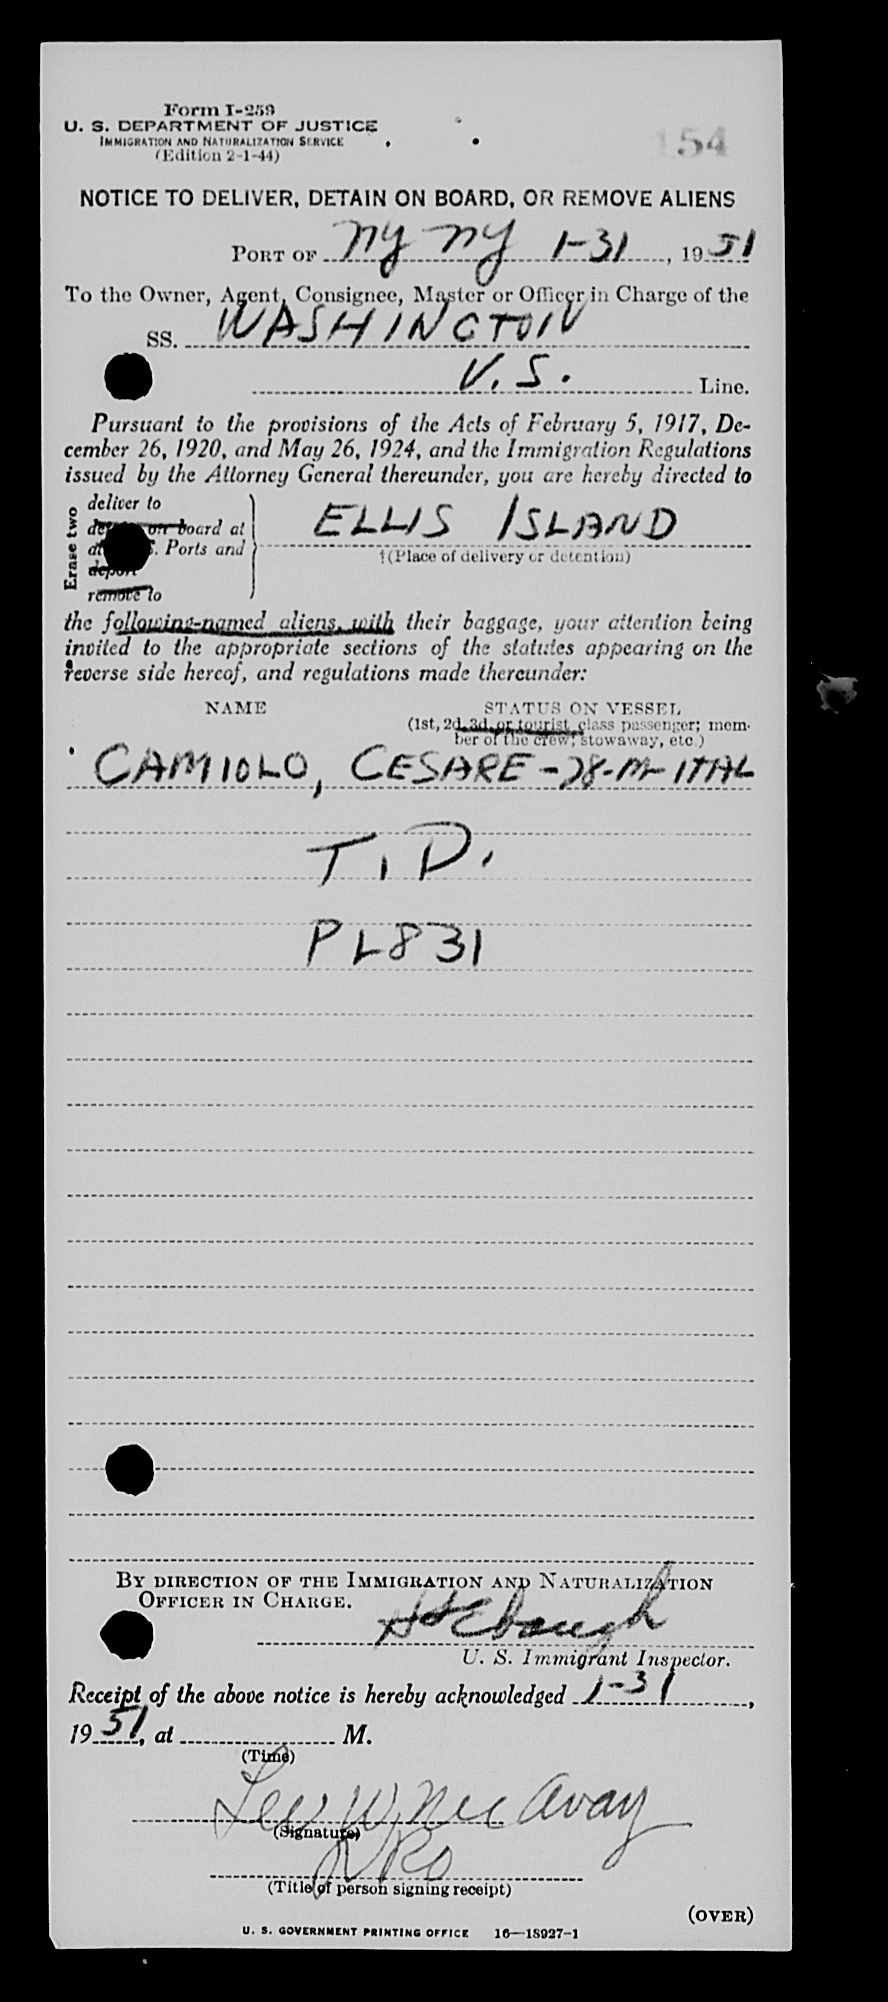 Form I-259
U. S. DEPARTMENT OF JUSTICE
IMMIGRATION AND NATURALIZATION SERVICE
(Edition 2-1-44)
154
NOTICE TO DELIVER, DETAIN ON BOARD, OR REMOVE ALIENS
PORT OF NY NY 1-31, 1951
To the Owner, Agent, Consignee, Master or Officer in Charge of the
SS. WASHINGTON
U.S. Line.
Pursuant to the provisions of the Acts of February 5, 1917, De-
cember 26, 1920, and May 26, 1924, and the Immigration Regulations
issued by the Attorney General thereunder, you are hereby directed to
Erase two
deliver to
on board at
Ports and
deport
remove to
ELLIS ISLAND
†(Place of delivery or detention)
the following-named aliens, with their baggage, your attention being
invited to the appropriate sections of the statutes appearing on the
reverse side hereof, and regulations made thereunder:
NAME STATUS ON VESSEL
(1st, 2d, 3d, or tourist class passenger; mem-
ber of the crew; stowaway, etc.)
CAMIOLO, CESARE-28-M-ITAL
T.D.
PL831
BY DIRECTION OF THE IMMIGRATION AND NATURALIZATION
OFFICER IN CHARGE.
U. S. Immigrant Inspector.
Receipt of the above notice is hereby acknowledged 1-31,
1951, at M.
(Time)
(Signature)
(Title of person signing receipt)
(OVER)
U. S. GOVERNMENT PRINTING OFFICE 16—18927-1